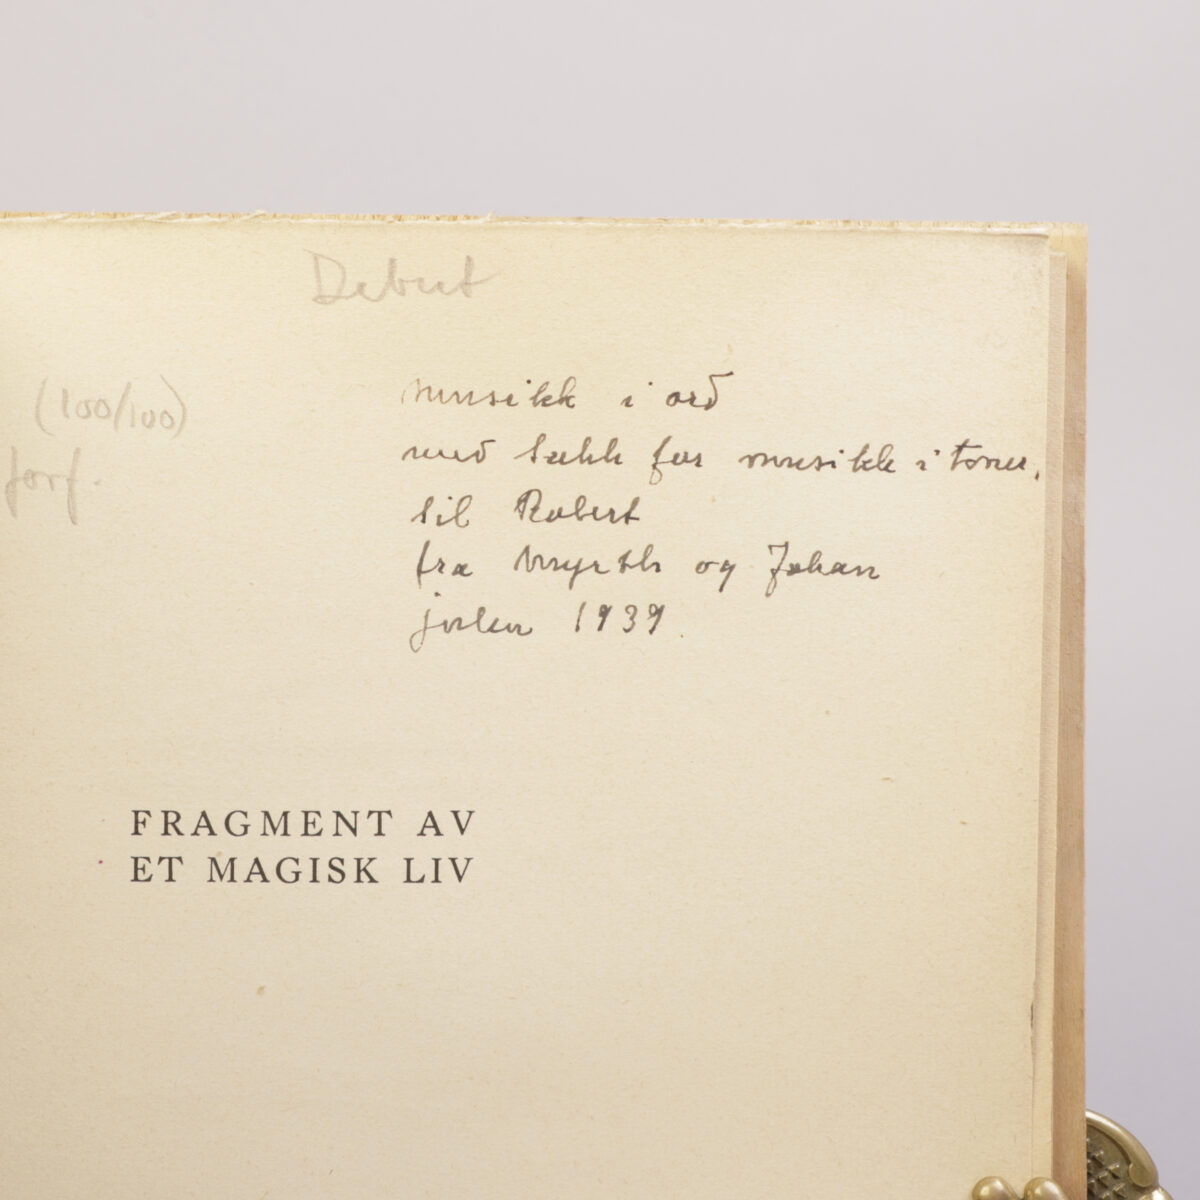 Debut
(100/100)
forf.
musikk i ord
med takk for musikk i toner.
til Robert
fra Myrth og Johan
julen 1939.
FRAGMENT AV
ET MAGISK LIV